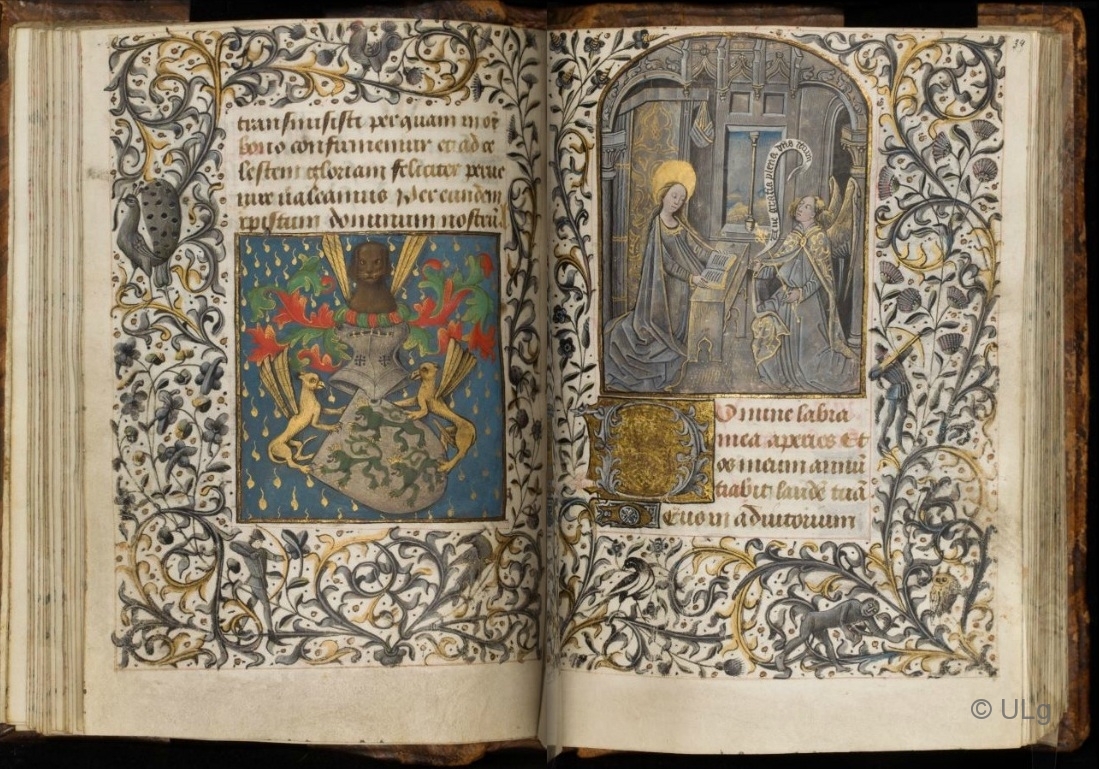 transmisisti per quam mor
bono consumemur et ad ce
lestem gloriam feliciter perue
nire ualeamus Per eundem
xpistum dominum nostru
34
aue gratia plena dns tecum
Domine labia
mea aperies Et
os meum annu
tiabit laudē tuā
Eus in adiutorium
© ULg